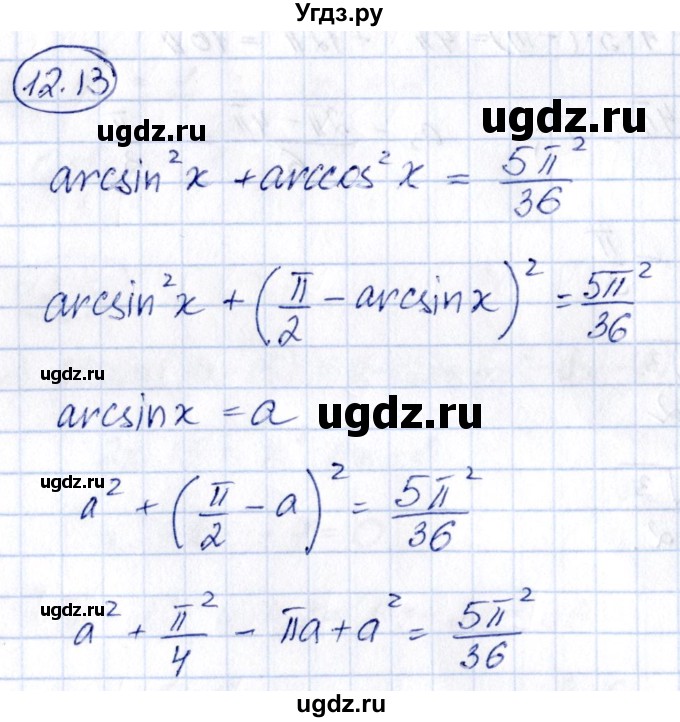 Угдз.ру
12.13
ugdz.ru ugdz.ru
arcsin²x + arccos²x = 5π²/36
arcsin²x + (π/2 − arcsinx)² = 5π²/36
ugdz.ru
arcsinx = a ugdz.ru
ugdz.ru
a² + (π/2 − a)² = 5π²/36
ugdz.ru
a² + π²/4 − πa + a² = 5π²/36